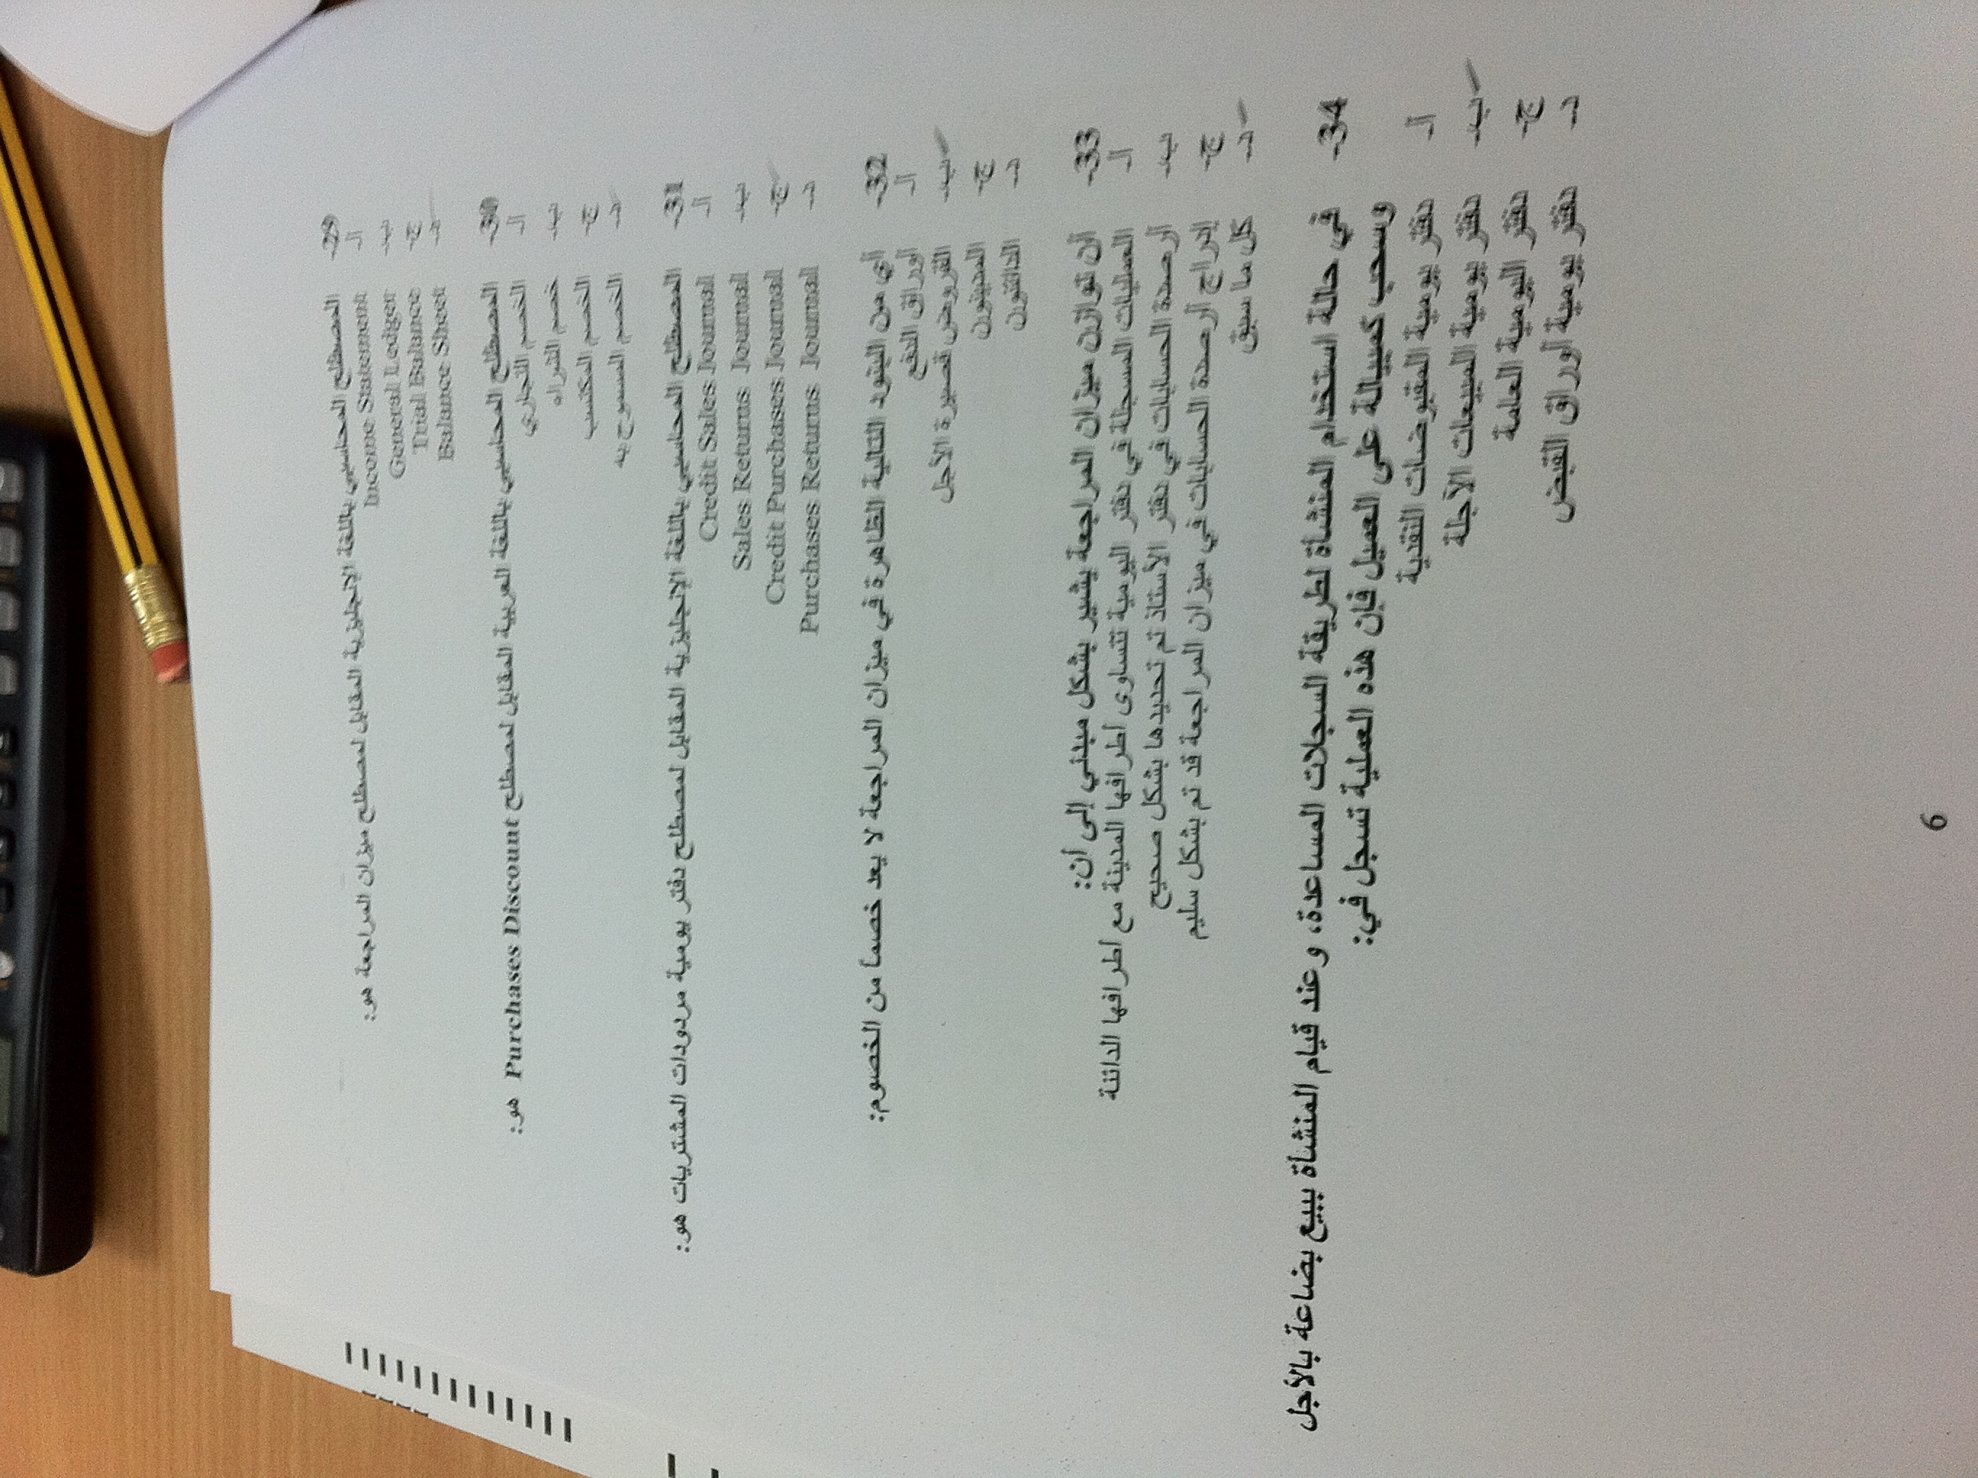 29- المصطلح المحاسبي باللغة الإنجليزية المقابل لمصطلح ميزان المراجعة هو:
أ- Income Statement
ب- General Ledger
ج- Trial Balance
د- Balance Sheet
30- المصطلح المحاسبي باللغة العربية المقابل لمصطلح Purchases Discount هو:
أ- الخصم التجاري
ب- خصم الشراء
ج- الخصم المكتسب
د- الخصم المسموح به
31- المصطلح المحاسبي باللغة الإنجليزية المقابل لمصطلح دفتر يومية مردودات المشتريات هو:
أ- Credit Sales Journal
ب- Sales Returns Journal
ج- Credit Purchases Journal
د- Purchases Returns Journal
32- أي من البنود التالية الظاهرة في ميزان المراجعة لا يعد خصماً من الخصوم:
أ- أوراق الدفع
ب- القروض قصيرة الأجل
ج- المدينون
د- الدائنون
33- أن توازن ميزان المراجعة يشير بشكل مبدئي إلى أن:
أ- العمليات المسجلة في دفتر اليومية تتساوى أطرافها المدينة مع أطرافها الدائنة
ب- أرصدة الحسابات في دفتر الأستاذ تم تحديدها بشكل صحيح
ج- إدراج أرصدة الحسابات في ميزان المراجعة قد تم بشكل سليم
د- كل ما سبق
34- في حالة استخدام المنشأة لطريقة السجلات المساعدة، وعند قيام المنشأة ببيع بضاعة بالأجل
وسحب كمبيالة على العميل فإن هذه العملية تسجل في:
أ- دفتر يومية المقبوضات النقدية
ب- دفتر يومية المبيعات الآجلة
ج- دفتر اليومية العامة
د- دفتر يومية أوراق القبض
6